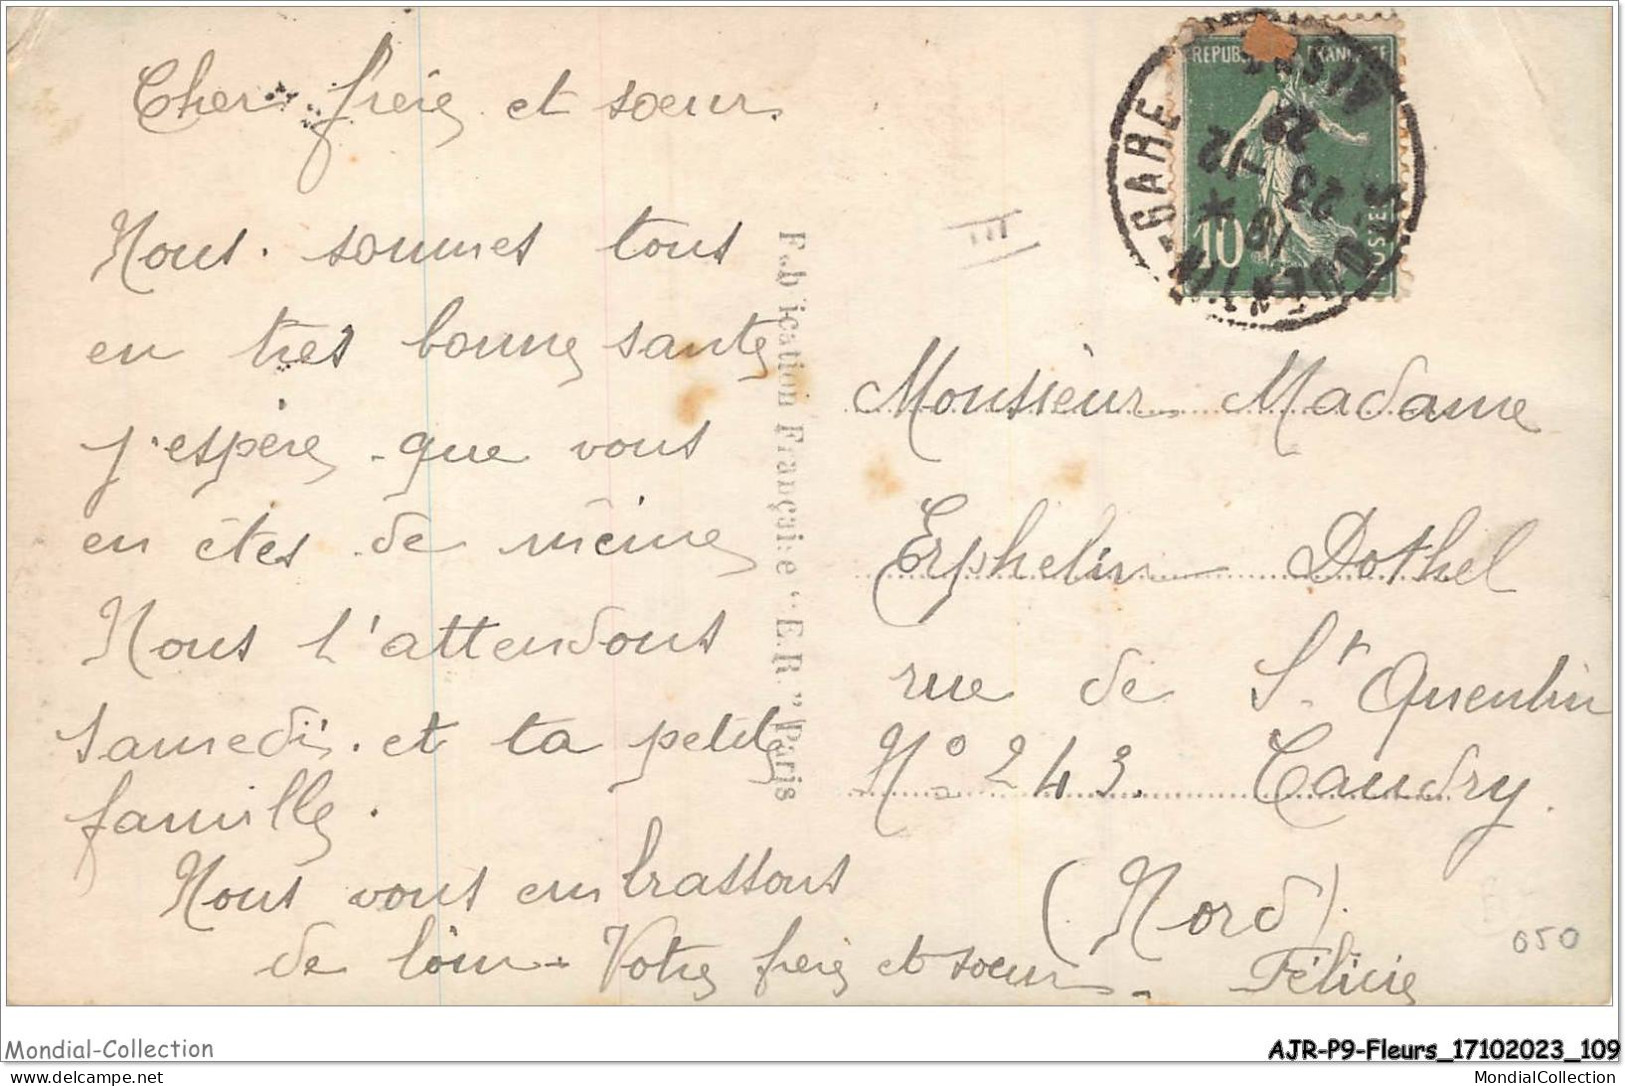 Cher frère et soeur
Nous sommes tous
en très bonne santé
j'espère que vous
en êtes de même
Nous t'attendons
samedi et ta petite
famille.
Nous vous embrassons
de loin - Votre frère et soeur Félicie
Fabrication Française "E.R." Paris
REPUB FRANÇAISE
10
POSTES
ST QUENTIN-GARE
18 *
23 -12
22
AISNE
Monsieur Madame
Erphelin Dothel
rue de St Quentin
N° 243. Caudry.
(Nord)
050
Mondial-Collection
AJR-P9-Fleurs_17102023_109
delcampe.net
MondialCollection